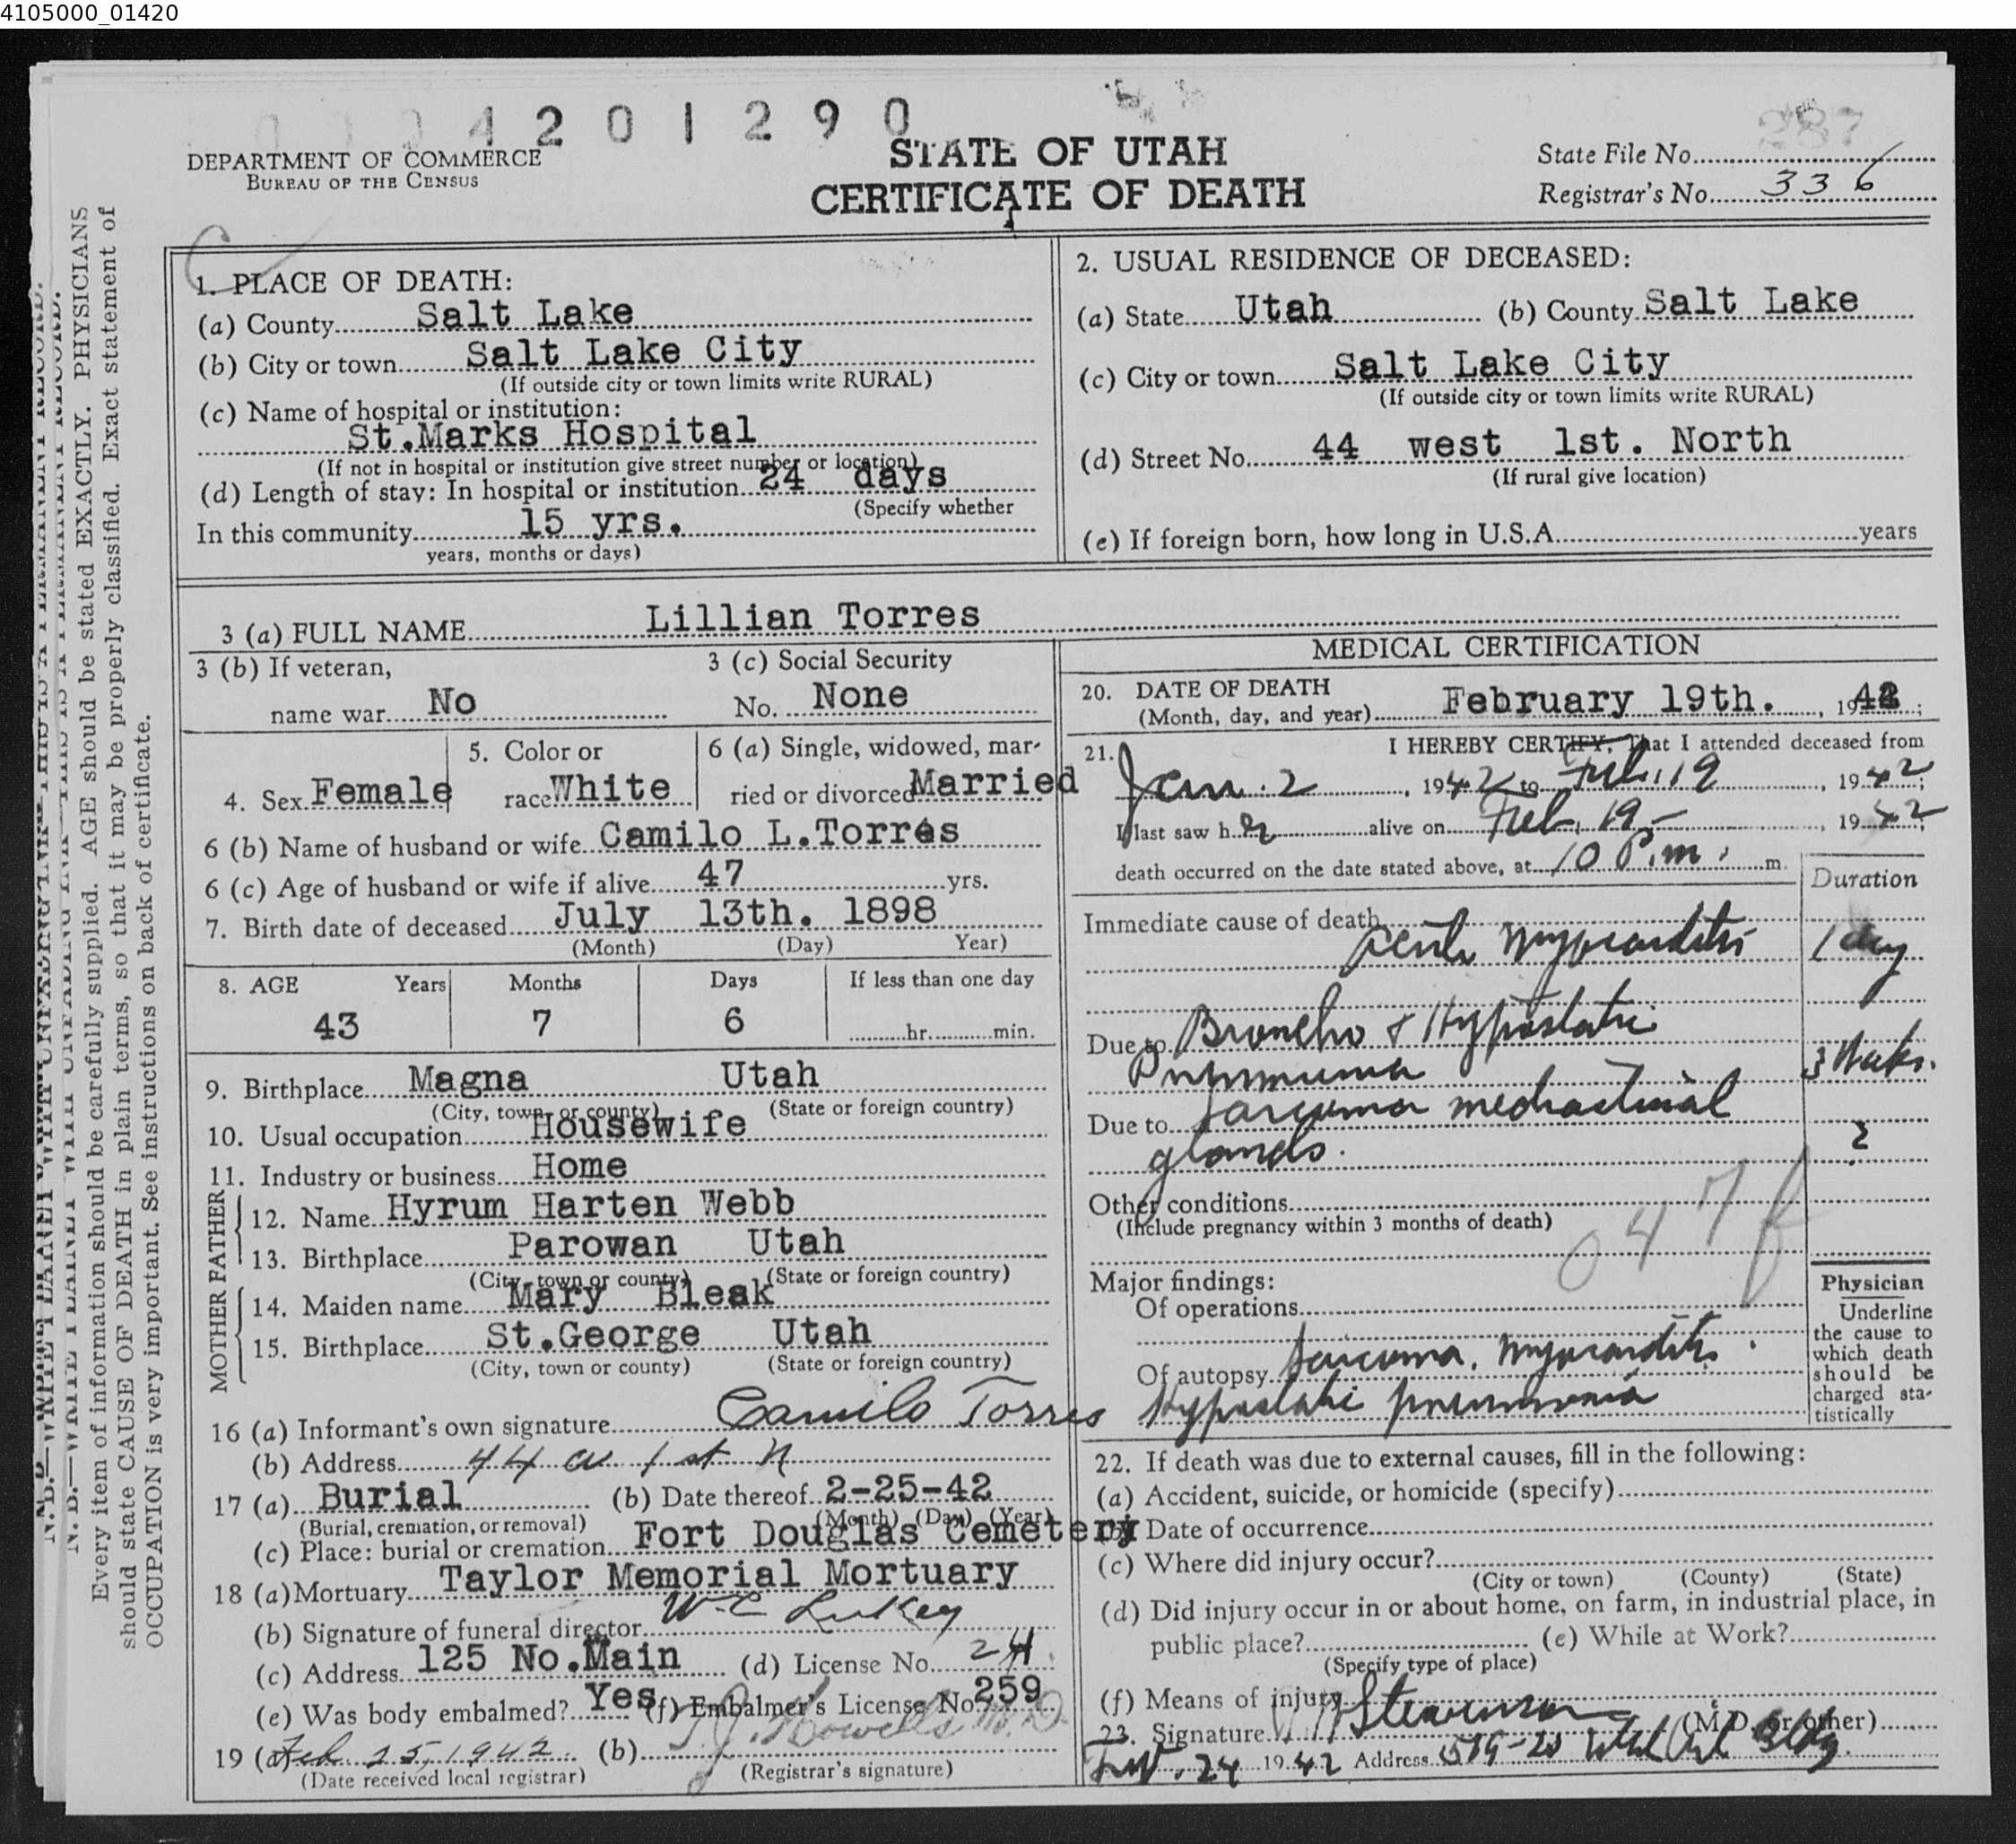 4105000_01420
4 2 0 1 2 9 0
287
DEPARTMENT OF COMMERCE
BUREAU OF THE CENSUS
STATE OF UTAH
CERTIFICATE OF DEATH
State File No.
Registrar's No. 336
N. B.—WRITE PLAINLY WITH UNFADING INK—THIS IS A PERMANENT RECORD.
Every item of information should be carefully supplied. AGE should be stated EXACTLY. PHYSICIANS
should state CAUSE OF DEATH in plain terms, so that it may be properly classified. Exact statement of
OCCUPATION is very important. See instructions on back of certificate.
1. PLACE OF DEATH:
(a) County Salt Lake
(b) City or town Salt Lake City
(If outside city or town limits write RURAL)
(c) Name of hospital or institution:
St.Marks Hospital
(If not in hospital or institution give street number or location)
(d) Length of stay: In hospital or institution 24 days
(Specify whether
In this community 15 yrs.
years, months or days)
2. USUAL RESIDENCE OF DECEASED:
(a) State Utah (b) County Salt Lake
(c) City or town Salt Lake City
(If outside city or town limits write RURAL)
(d) Street No. 44 west 1st. North
(If rural give location)
(e) If foreign born, how long in U.S.A. years
3 (a) FULL NAME Lillian Torres
3 (b) If veteran, 3 (c) Social Security
name war No No. None
4. Sex Female
5. Color or
race White
6 (a) Single, widowed, mar-
ried or divorced Married
6 (b) Name of husband or wife Camilo L.Torres
6 (c) Age of husband or wife if alive 47 yrs.
7. Birth date of deceased July 13th. 1898
(Month) (Day) Year)
8. AGE Years Months Days If less than one day
43 7 6 hr. min.
9. Birthplace Magna Utah
(City, town, or county) (State or foreign country)
10. Usual occupation Housewife
11. Industry or business Home
FATHER
12. Name Hyrum Harten Webb
13. Birthplace Parowan Utah
(City, town or county) (State or foreign country)
MOTHER
14. Maiden name Mary Bleak
15. Birthplace St.George Utah
(City, town or county) (State or foreign country)
16 (a) Informant's own signature Camilo Torres
(b) Address 44 w 1st N
17 (a) Burial (b) Date thereof 2-25-42
(Burial, cremation, or removal) (Month) (Day) (Year)
(c) Place: burial or cremation Fort Douglas Cemetery
18 (a) Mortuary Taylor Memorial Mortuary
(b) Signature of funeral director
(c) Address 125 No.Main (d) License No. 24
(e) Was body embalmed? Yes (f) Embalmer's License No. 259
19 (a) Feb 25, 1942 (b) T.J. Howells M.D.
(Date received local registrar) (Registrar's signature)
MEDICAL CERTIFICATION
20. DATE OF DEATH
(Month, day, and year) February 19th. , 1942;
21. I HEREBY CERTIFY, That I attended deceased from
Jan. 2, 1942 to Feb. 19, 1942;
I last saw her alive on Feb. 19, 1942;
death occurred on the date stated above, at 10 P.m. m.
Duration
Immediate cause of death
Acute Myocarditis 1 day
Due to Broncho & Hypostatic
Pneumonia 3 Weeks.
Due to Sarcoma mediastinal
glands. ?
Other conditions
(Include pregnancy within 3 months of death)
047f
Major findings:
Of operations
Of autopsy Sarcoma, Myocarditis.
Hypostatic pneumonia
Physician
Underline
the cause to
which death
should be
charged sta-
tistically
22. If death was due to external causes, fill in the following:
(a) Accident, suicide, or homicide (specify)
(b) Date of occurrence
(c) Where did injury occur?
(City or town) (County) (State)
(d) Did injury occur in or about home, on farm, in industrial place, in
public place? (e) While at Work?
(Specify type of place)
(f) Means of injury
23. Signature Stevenson (M.D. or other)
24 1942 Address 519-20 Bldg.